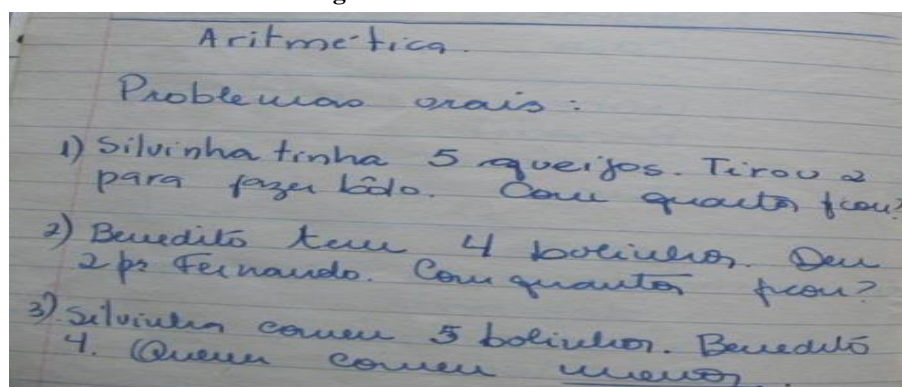 Aritmética.
Problemas orais:
1) Silvinha tinha 5 queijos. Tirou 2
para fazer bôlo. Com quantos ficou?
2) Benedito tem 4 bolinhos. Deu
2 pª Fernando. Com quantos ficou?
3) Silvinha comeu 5 bolinhos. Benedito
4. Quem comeu menos